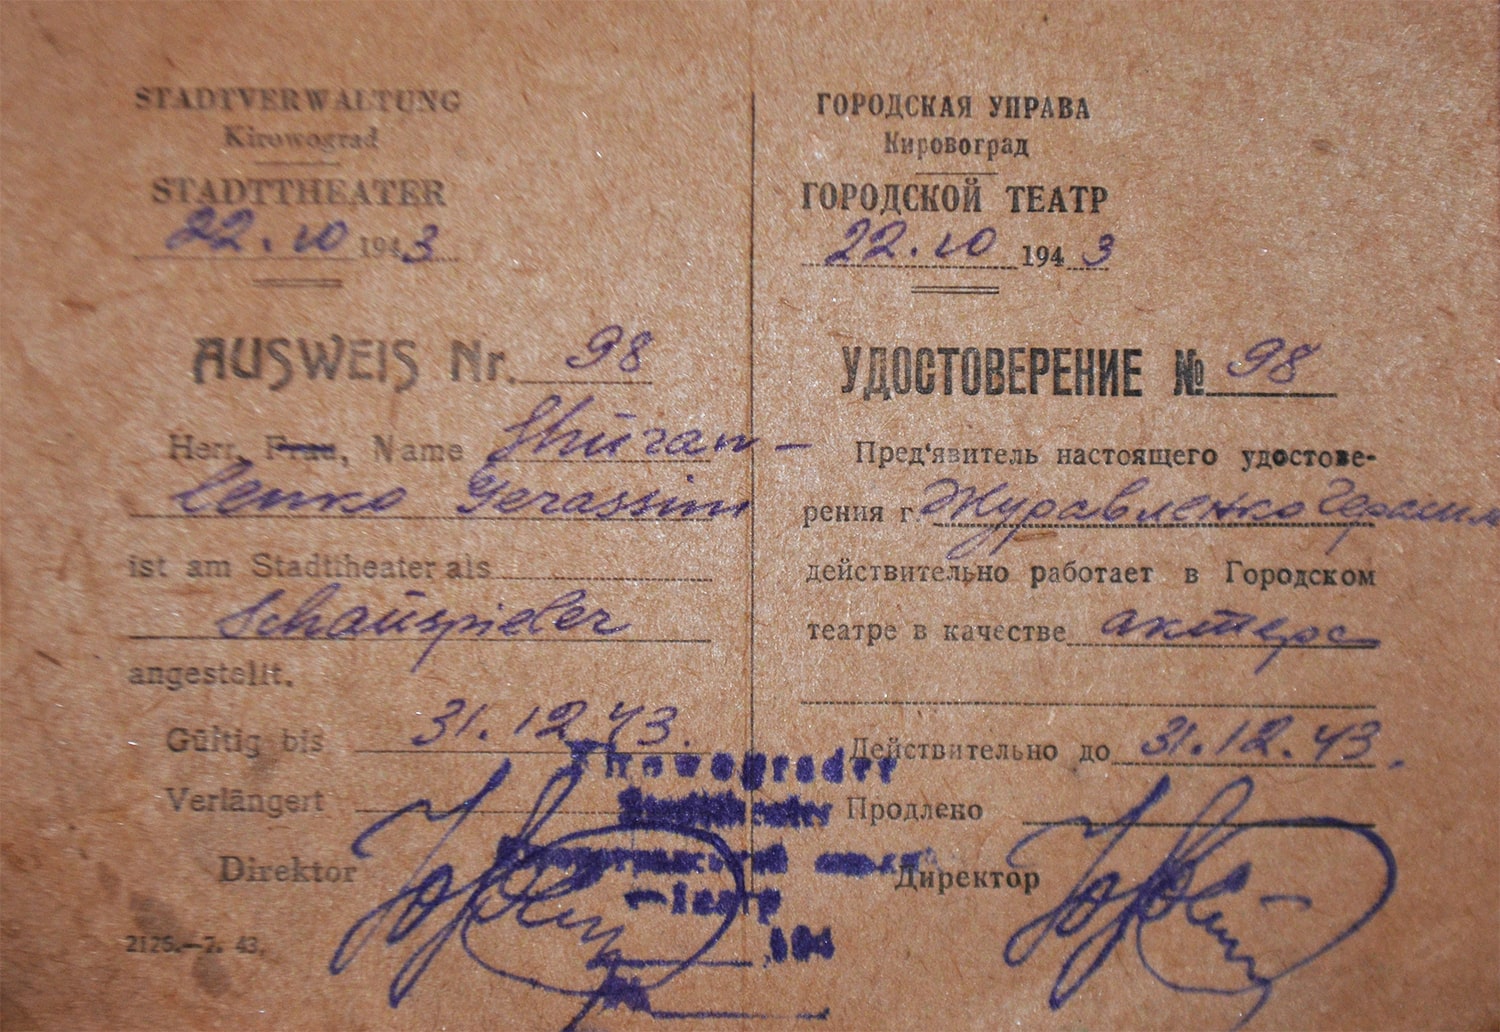 STADTVERWALTUNG
Kirowograd
STADTTHEATER
22.10 1943
AUSWEIS Nr. 98
Herr, Frau, Name Shuraw-
lenko Gerassim
ist am Stadttheater als
Schauspieler
angestellt.
Gültig bis 31.12.43.
Verlängert
Direktor
2126.—7. 43.
ГОРОДСКАЯ УПРАВА
Кировоград
ГОРОДСКОЙ ТЕАТР
22.10 1943
УДОСТОВЕРЕНИЕ № 98
Пред'явитель настоящего удостове-
рения г. Журавленко Герасим
действительно работает в Городском
театре в качестве актера
Действительно до 31.12.43.
Продлено
Директор
Kirowograder
Stadttheater
194